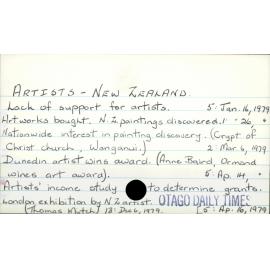 ARTISTS - NEW ZEALAND.
Lack of support for artists. 5: Jan. 16, 1979
Artworks bought. N.Z. paintings discovered. 1 " 26 "
Nationwide interest in painting discovery. (Crypt of
Christ church, Wanganui.) 2: Mar. 6, 1979
Dunedin artist wins award. (Anne Baird, Ormond
wines art award). 5: Ap. 14, "
Artists' income study to determine grants.
London exhibition by N.Z. artist. OTAGO DAILY TIMES
(Thomas Mutch) 18: Dec 6, 1979. [5: Ap. 16, 1979